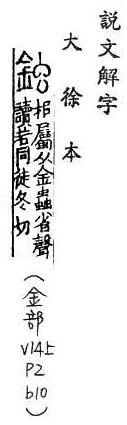 說文解字
大徐本
鉵
枱屬从金蟲省聲
讀若同徒冬切
(金部 V14上 P2 b10)